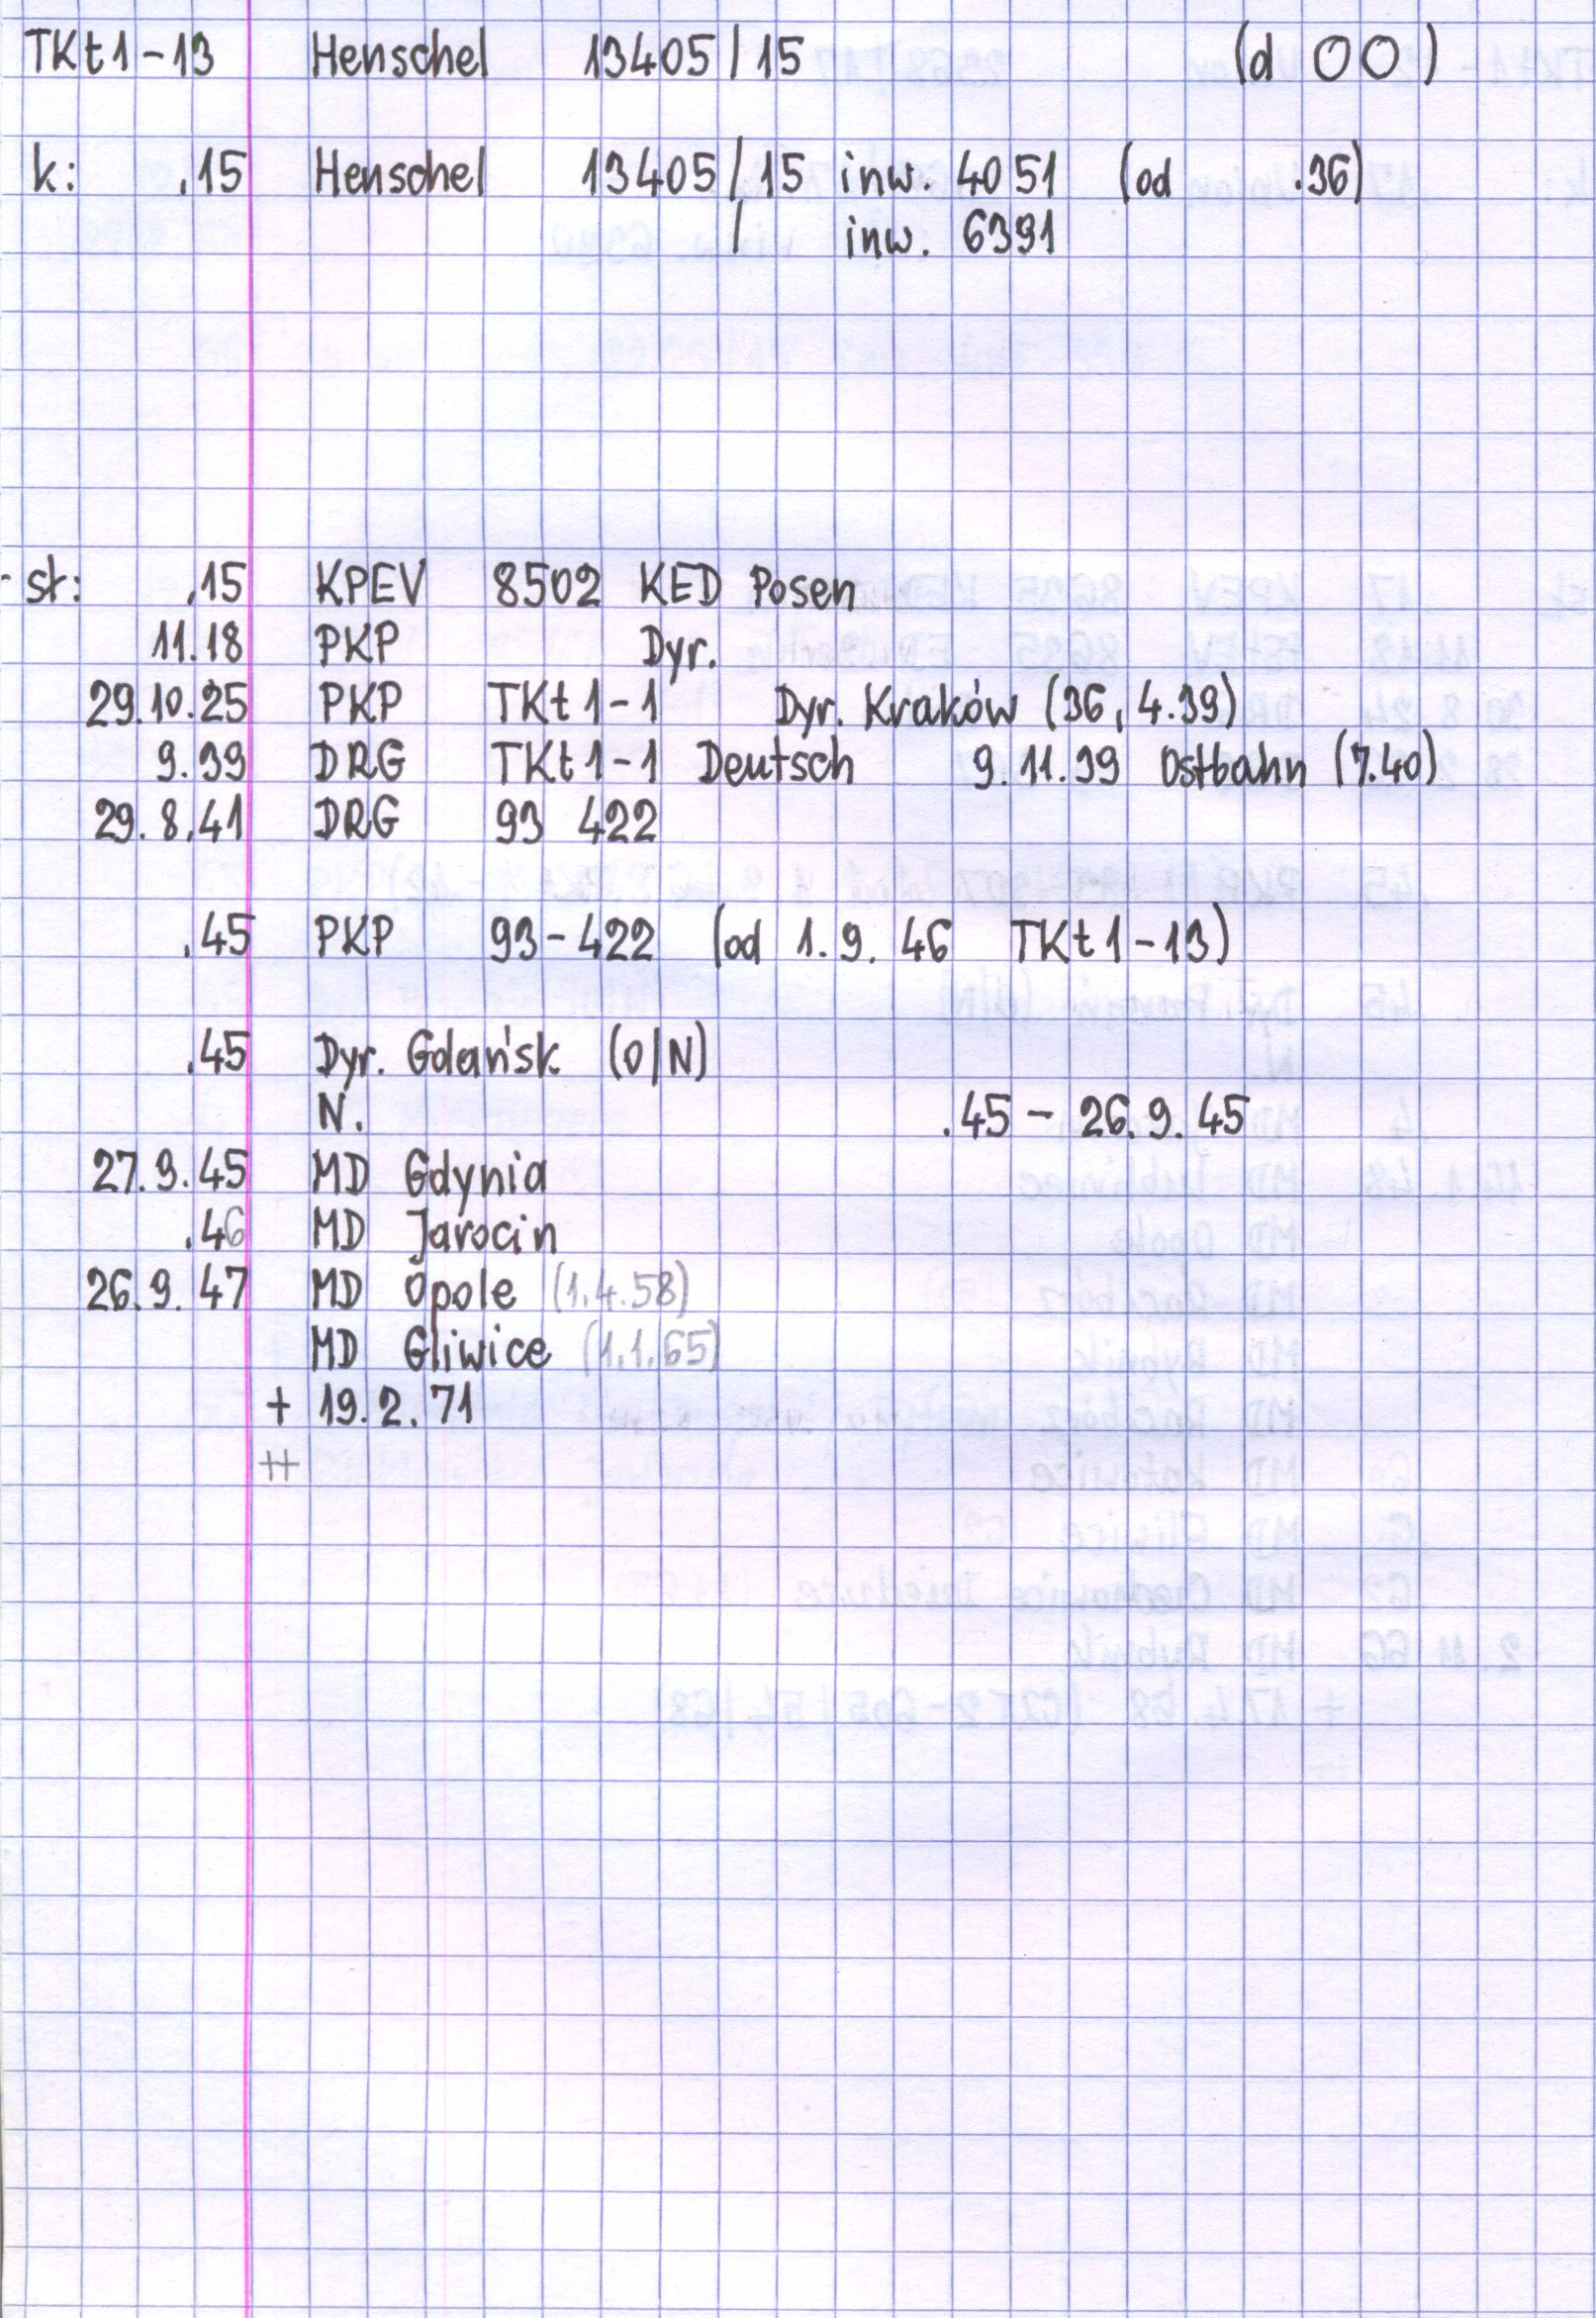 TKt1-13 Henschel 13405/15 (d OO)
k: .15 Henschel 13405/15 inw. 4051 (od .36)
/ inw. 6391
st: .15 KPEV 8502 KED Posen
11.18 PKP Dyr.
29.10.25 PKP TKt1-1 Dyr. Kraków (36, 4.39)
9.39 DRG TKt1-1 Deutsch 9.11.39 Ostbahn (7.40)
29.8.41 DRG 93 422
.45 PKP 93-422 (od 1.9.46 TKt1-13)
.45 Dyr. Gdańsk (O/N)
N. .45 - 26.9.45
27.9.45 MD Gdynia
.46 MD Jarocin
26.9.47 MD Opole (1.4.58)
MD Gliwice (1.1.65)
+ 19.2.71
++